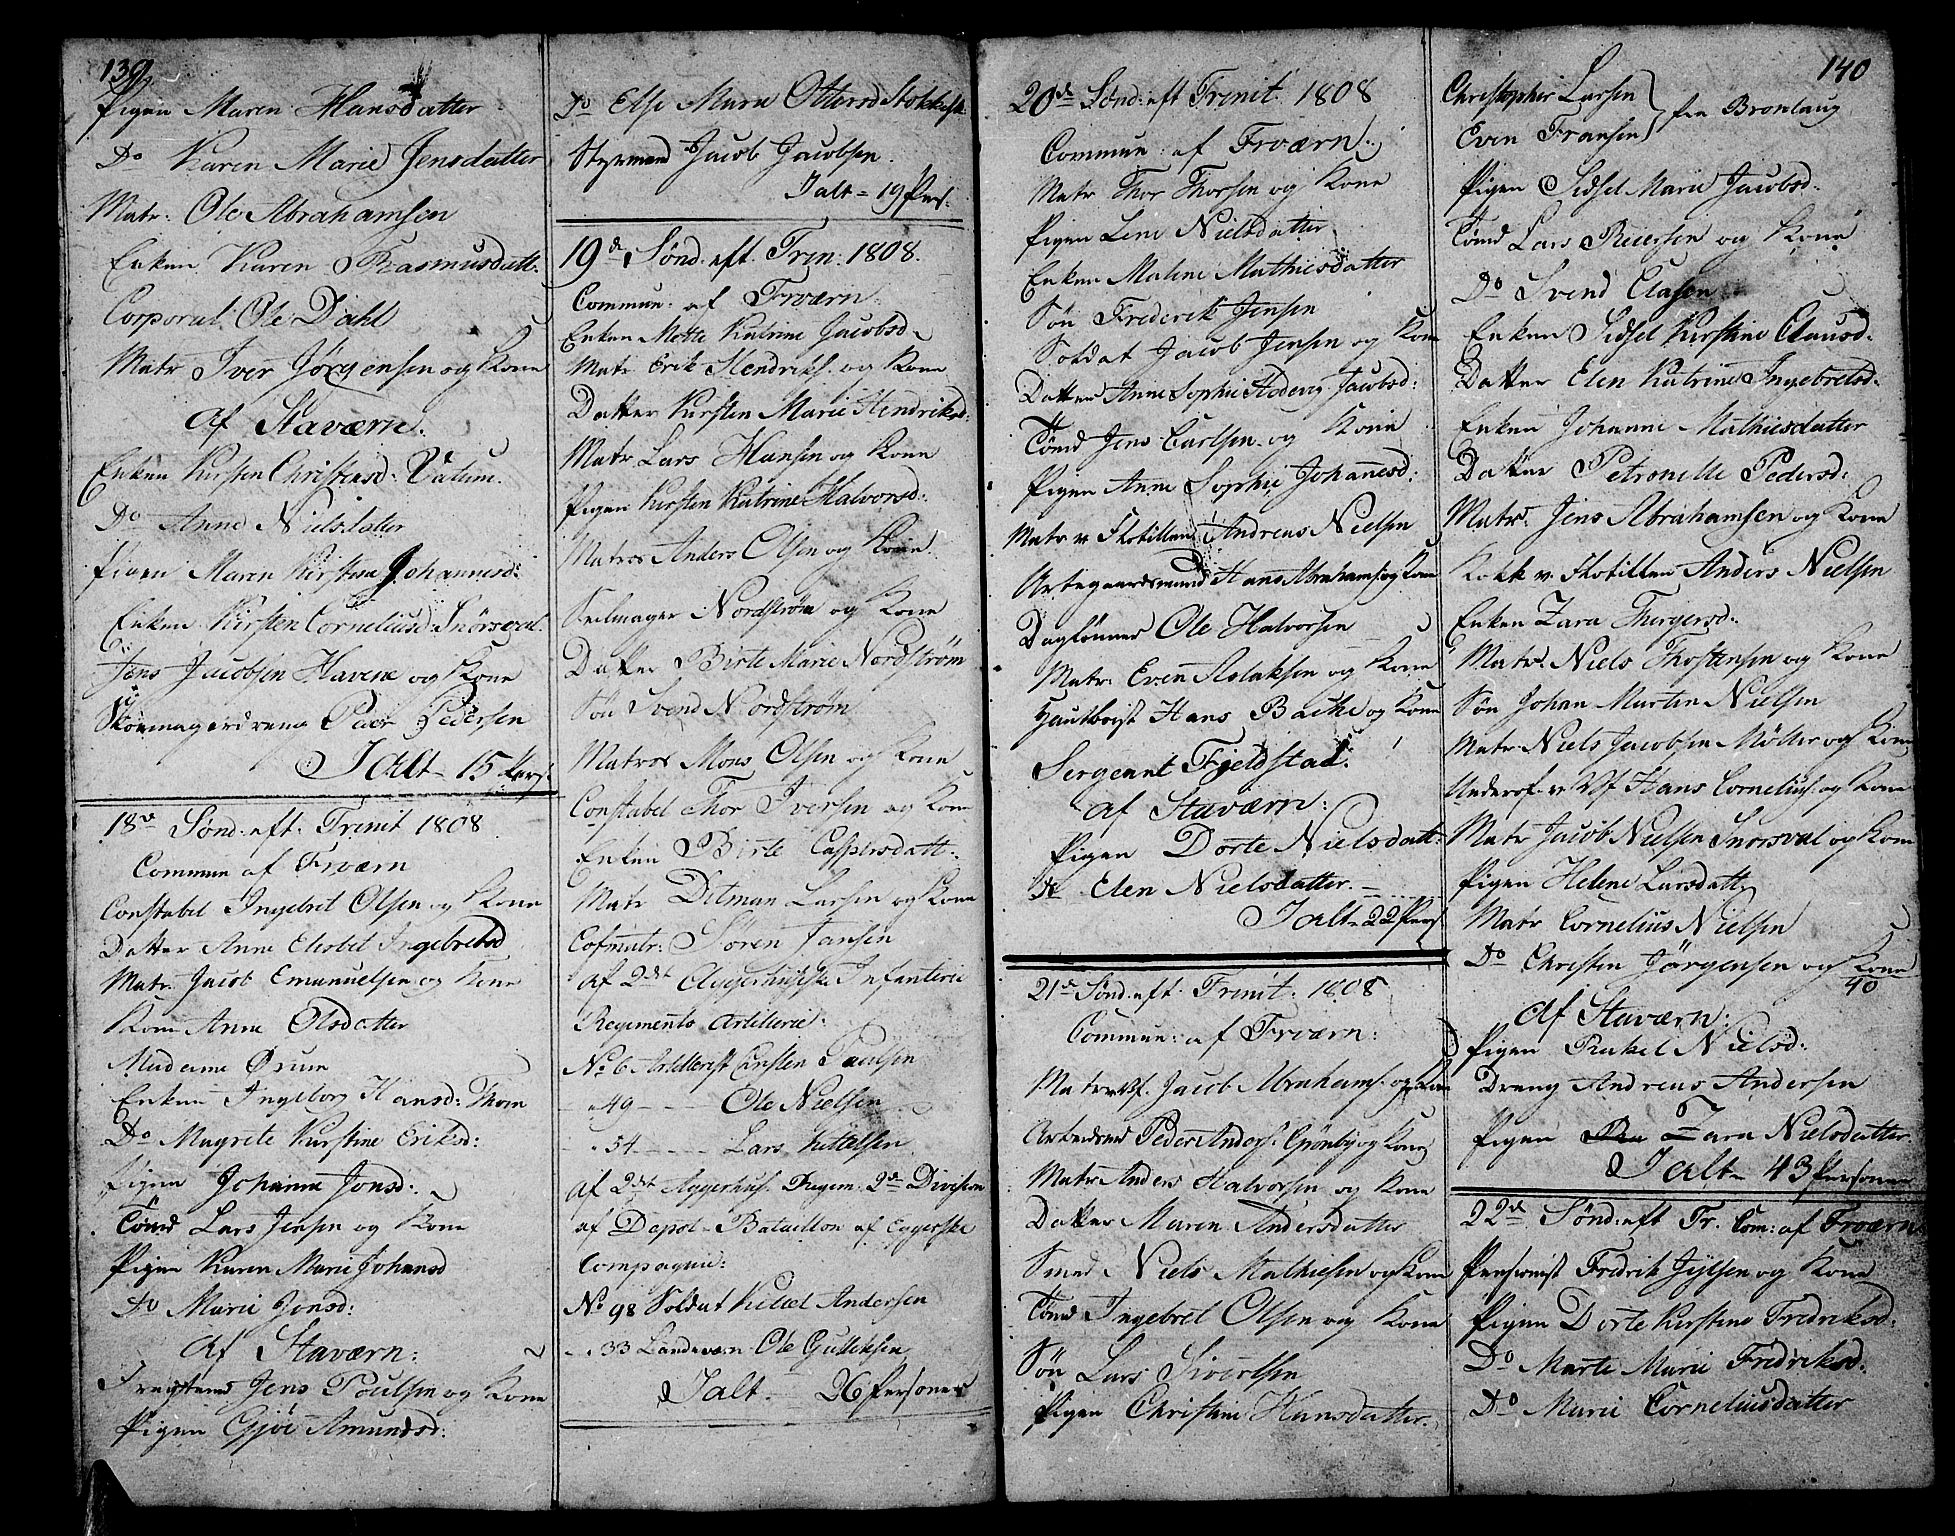 139
Pigen Maren Hansdatter
Do Karen Marie Jensdatter
Matr: Ole Abrahamsen
Enken Karen Rasmusdatt.
Corporal Ole Dahl
Matr Iver Jørgensen og Kone
Af Staværn.
Enken Kirsten Christensd:
Do Anne Nielsdatter
Pigen Maren Kirstine Johannesd:
Enken Kirsten Corneliusd: Snørsval.
Jens Jacobsen Havene og Kone
Skomagerdreng Peder Pedersen
I Alt – 15 Pers.
18de Sønd: eft: Trinit 1808
Commun af Frværn
Constabel Ingebret Olsen og Kone
Datter Anne Elisabet Ingebretsd
Matr. Jacob Emanuelsen og Kone
Kone Anne Olsdatter
Madame Ørum
Enken Ingeborg Hansd: Thom
Do Magrete Kirstine Eriksd:
Pigen Johanne Jonsd:
Tømd Lars Jensen og Kone
Pigen Karen Marie Johansd
Do Marie Jonsd:
Af Staværn:
Jens Poulsen og Kone
Pigen Gjøe Amundsd:
Do Else Maria Ottersd Stokkest
Styrmand Jacob Jacobsen.
I alt = 19 Pers.
19de Sønd. eft. Trin: 1808.
Commun: af Frværn:
Enken Mette Katrine Jacobsd
Matr Erik Hendriks. og Kone
Datter Kirsten Marie Hendriksd:
Matr Lars Hansen og Kone
Pigen Kirsten Katrine Halvorsd:
Matros Anders Olsen og Kone
Seilmager Nordstrøm og Kone
Datter Birte Marie Nordstrøm
Søn Svend Nordstrøm
Matros Mons Olsen og Kone
Constabel Thor Iversen og Kone
Enken Birte Caspersdatt.
Matr Ditman Larsen og Kone
Cofmatr: Søren Jansen
af 2det Aggerhusiske Infanterie
Regiments Artillerie:
No 6 Artillerist Carsten Paulsen
– 49 – – – Ole Nielsen
– 54 – – – Lars Kittelsen
af 2det Aggerhus. Regim: 2de Division
af Depot-Bataillon af Eggerske
Compagnie:
No 98 Soldat Kittel Andersen
– 33 Landeværn Ole Gulliksen
I alt – 26 Personer
20de Sønd: eft Trinit: 1808
Commun: af Frværn:
Matr Thor Thorsen og Kone
Pigen Lene Nielsdatter
Enken Malene Mathiesdatter
Søn Frederik Jensen
Soldat Jacob Jensen og Kone
Datter Anne Sophie Hedevig Jacobsd:
Tømd Jens Carlsen og Kone
Pigen Anne Sophie Johannesd:
Matr v Flotillen Andreas Nielsen
Hans Abrahams. og Kone
Daglønner Ole Halvorsen
Matr: Even Aslaksen og Kone
Hautboist Hans Bache og Kone
Sergeant Fjeldstad:
Af Staværn:
Pigen Dorte Nielsdatt:
Do Elen Nielsdatter. –
I alt – 22 Pers
21de Sønd: eft. Trinit: 1808
Commun: af Frværn:
Matr v Vf. Jacob Abrahams. og Kone
Peder Anders. Grønby og Kone
Matr Anders Halvorsen og Kone
Datter Maren Andersdatter
Smed Niels Mathiesen og Kone
Tømd Ingebret Olsen og Kone
Søn Lars Sivertsen
Pigen Christine Hansdatter.
140
Christopher Larsen
Even Fransen } fra Bronlaug
Pigen Sidsel Marie Jacobsd:
Tømd Lars Reiersen og Kone
Do Svend Clasen
Enken Sidsel Kirstine Clausd.
Datter Elen Katrine Ingebretsd.
Enken Johanne Mathiesdatter
Datter Petronelle Pedersd:
Matr. Jens Abrahamsen og Kone
Kokk v. Flotillen Anders Nielsen
Enken Zara Thergersd:
Matr. Niels Thostensen og Kone
Søn Johan Martin Nielsen
Matr Niels Jacobsen Møller og Kone
Underof. v. Vf Hans Cornelius. og Kone
Matr Jacob Nielsen Snørsval og Kone
Pigen Helene Larsdatt
Matr Cornelius Nielsen
Do Christen Jørgensen og Kone
40
Af Staværn:
Pigen Rakel Nielsd:
Dreng Andreas Andersen
Pigen Zara Nielsdatter
I alt – 43 Personer
22de Sønd: eft Tr. Com: af Frværn
Pensionist Fredrik Jylsen og Kone
Pigen Dorte Kirstine Fredriksd:
Do Marte Marie Fredriksd:
Do Marie Corneliusdatter